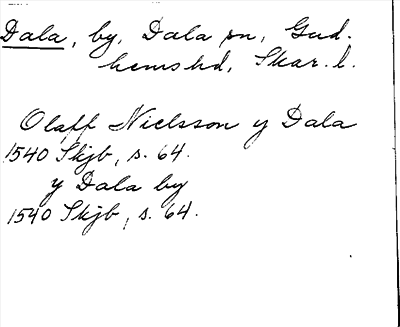 Dala, by, Dala sn, Gud-
hems hd, Skar. l.
Olaff Nielsson y Dala
1540 Skjb, s. 64.
y Dala by
1540 Skjb, s. 64.